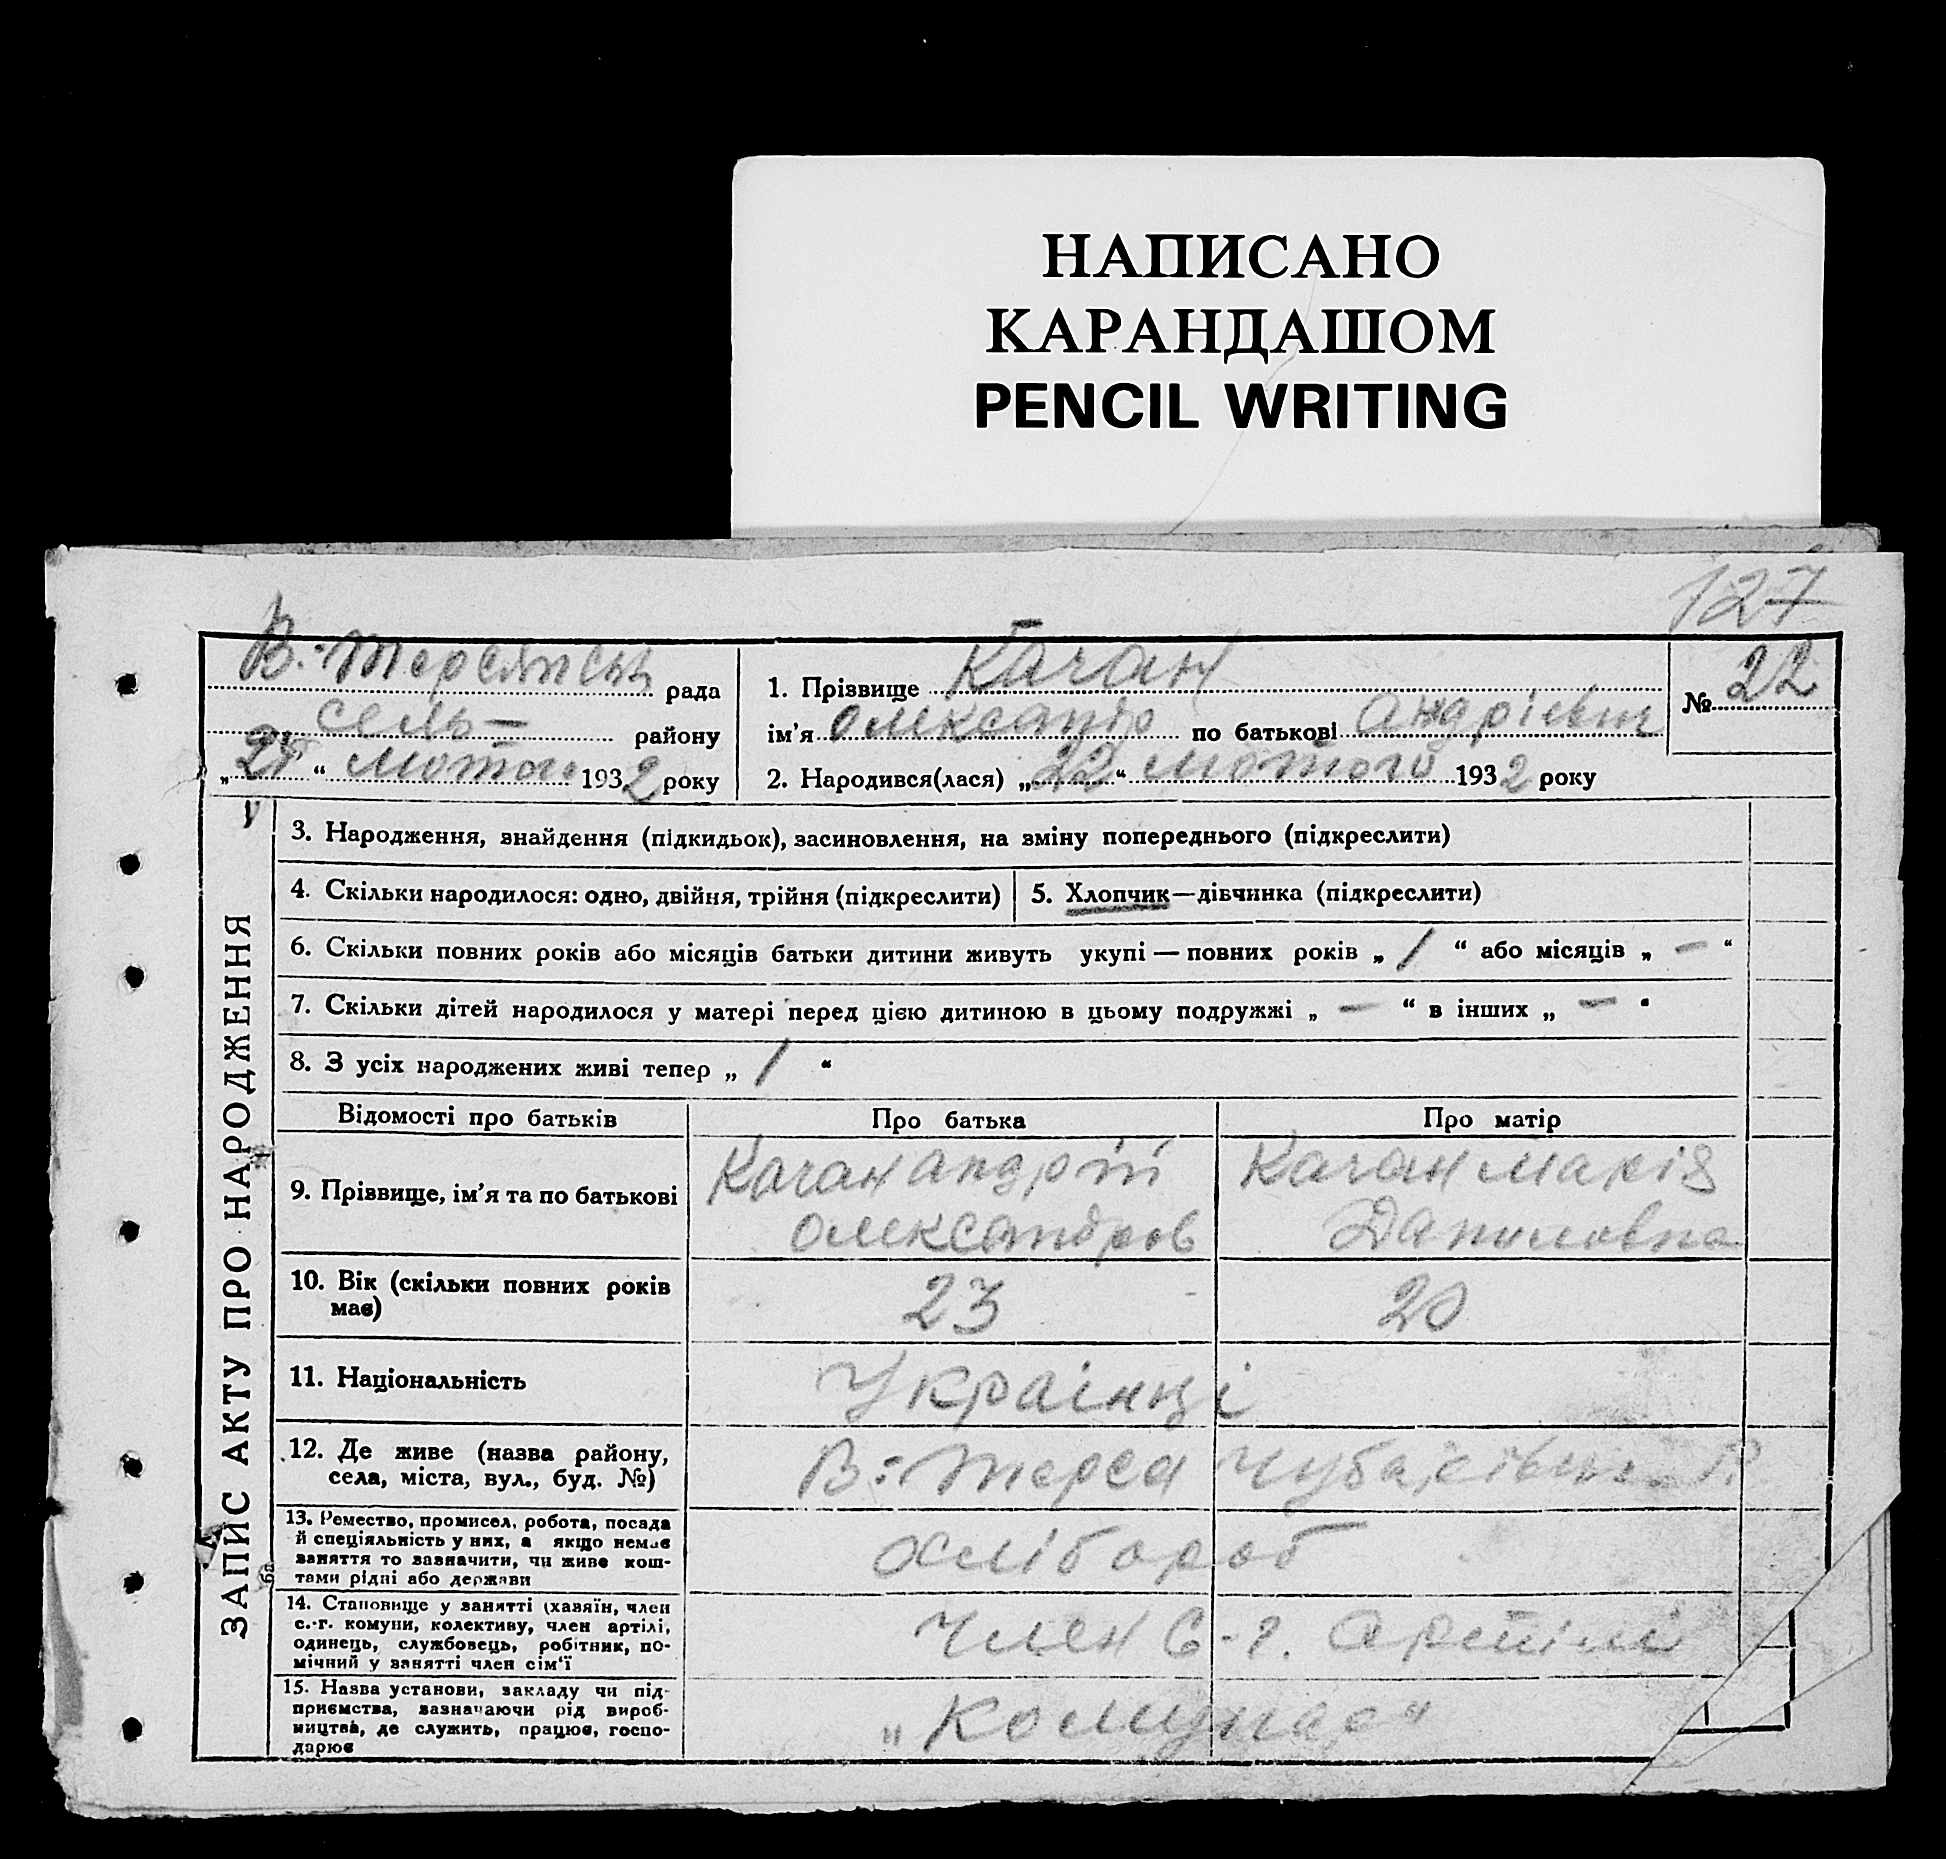 НАПИСАНО
КАРАНДАШОМ
PENCIL WRITING
127
В.-Терсянськ рада
сель- району
„24“ лютого 1932 року
1. Прізвище Качан
ім'я Олександр по батькові Андрієвич
2. Народився(лася) „22“ лютого 1932 року
№ 22
ЗАПИС АКТУ ПРО НАРОДЖЕННЯ
3. Народження, знайдення (підкидьок), засиновлення, на зміну попереднього (підкреслити)
4. Скільки народилося: одно, двійня, трійня (підкреслити)
5. Хлопчик—дівчинка (підкреслити)
6. Скільки повних років або місяців батьки дитини живуть укупі — повних років „ 1 “ або місяців „ — “
7. Скільки дітей народилося у матері перед цією дитиною в цьому подружжі „ — “ в інших „ — “
8. З усіх народжених живі тепер „ 1 “
Відомості про батьків Про батька Про матір
9. Прізвище, ім'я та по батькові
Качан Андрій
Олександров
Качан Марія
Даниловна
10. Вік (скільки повних років
має)
23
20
11. Національність
Українці
12. Де живе (назва району,
села, міста, вул., буд. №)
В.-Терса Чубарівськ. Р.
13. Ремество, промисел, робота, посада
й спеціяльність у них, а якщо немає
заняття то зазначити, чи живе кош-
тами рідні або держави
Хлібороб
14. Становище у занятті (хазяїн, член
с.-г. комуни, колективу, член артілі,
одинець, службовець, робітник, по-
мічний у занятті член сім'ї
Член С-г. артілі
15. Назва установи, закладу чи під-
приємства, зазначаючи рід вироб-
ництва, де служить, працює, госпо-
дарює
„Комунар“